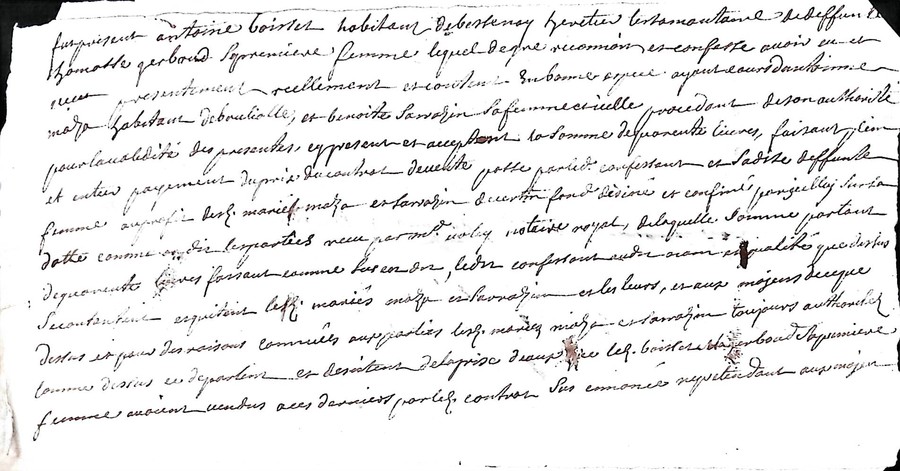 fut présent antoine boisset habitant de bessenay heretier testamantaire de deffunte
thomasse gerboud sa premiere femme lequel de gré reconnoit et confesse avoir eu et
receu presentement reellement et contant en bonne espece ayant cours d'antoinne
maza habitant de broulliolle, et benoite sarrazin sa femme et icelle procedant de son authorité
pour la validité des presentes, cy present et acceptant la somme de quarente livres, faisant plein
et entier payement du prix du contrat de vente passé par led. confessant et sadite deffunte
femme au profit desd. mariés maza et sarrazin de certin fond désiné et confiné par icelluy sur sa
datte comme ont dit les parties receu par me notaire royal, de laquelle somme partant
de quarente livres faisant comme dessus led. confessant aud. nom et qualité que dessus
se contantent et quittent lesd. mariés maza et sarrazin et les leurs, et aux mojens de ce que
dessus et pour des raisons connuées aux parties lesd. mariés maza et sarrazin toujours authorisée
comme dessus se departent et desistent de la prise d'eaux que led. boisset et lad. gerboud sa premiere
femme avoient vendus a ces derniers par led. contrat sus enoncé repetendant aux mojen